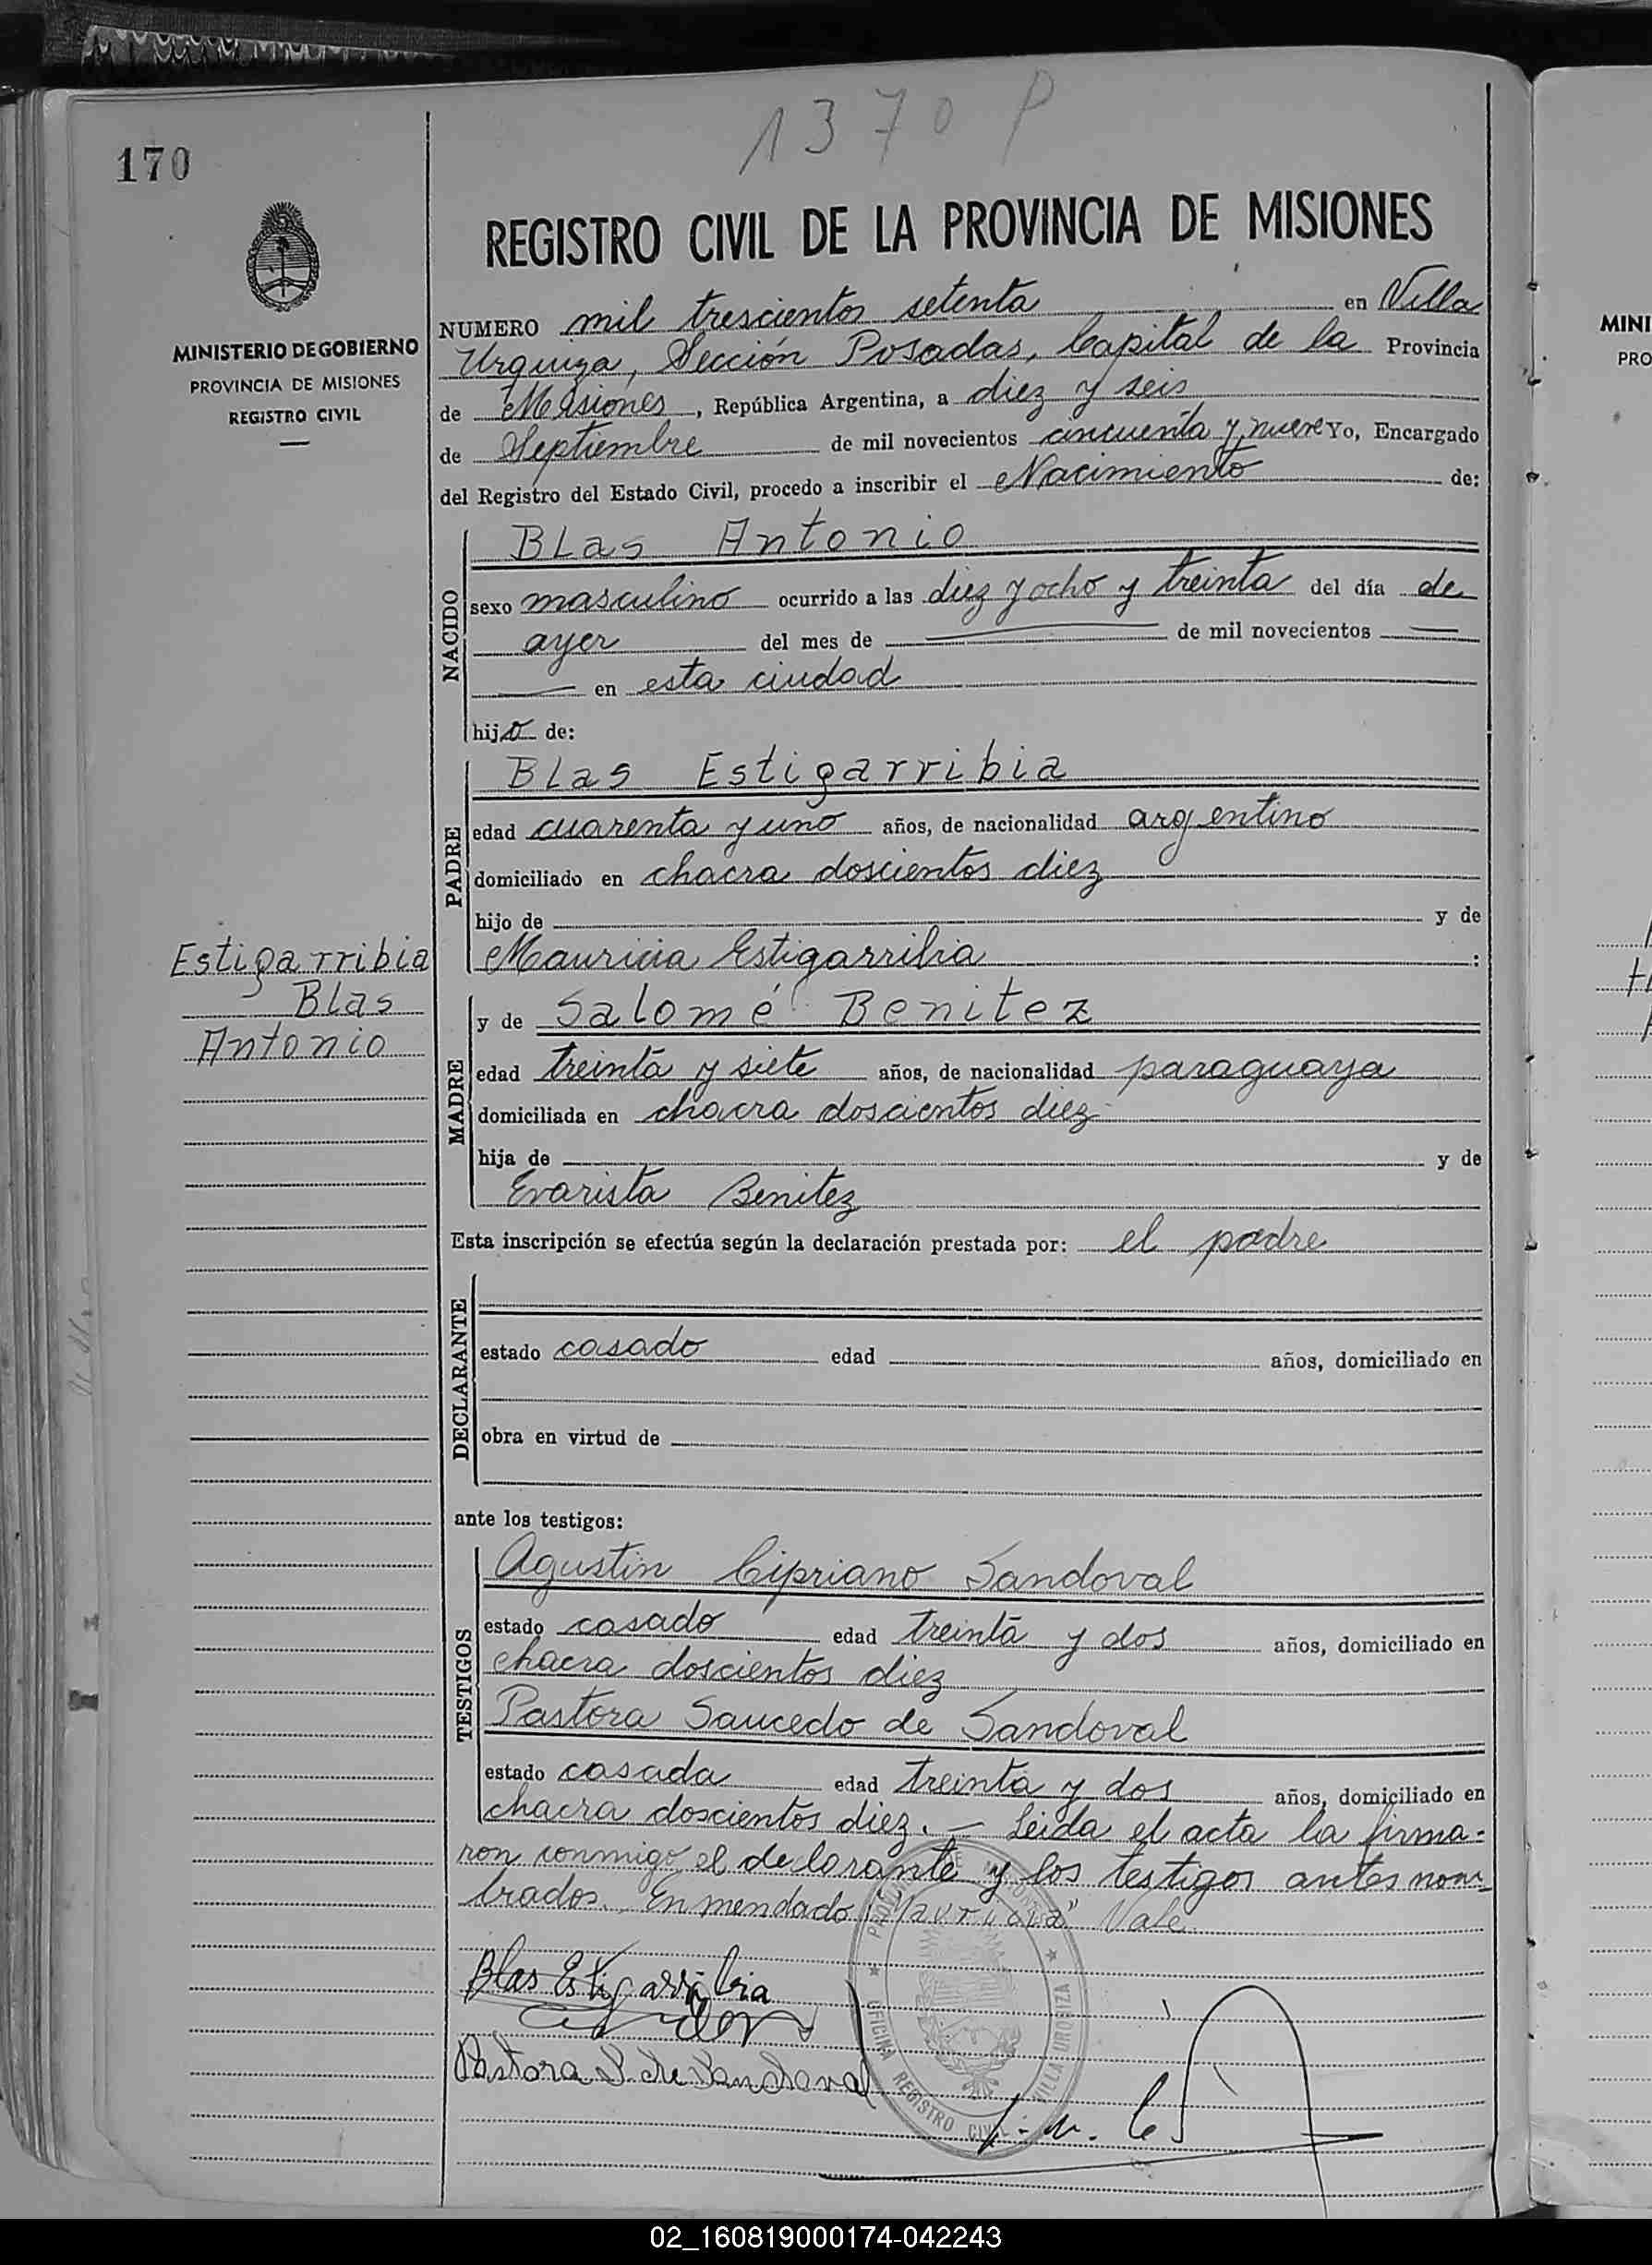 1370 P
170
REGISTRO CIVIL DE LA PROVINCIA DE MISIONES
MINISTERIO DE GOBIERNO
PROVINCIA DE MISIONES
REGISTRO CIVIL
NUMERO mil trescientos setenta en Villa
Urquiza, Sección Posadas, Capital de la Provincia
de Misiones, República Argentina, a diez y seis
de Septiembre de mil novecientos cincuenta y nueve Yo, Encargado
del Registro del Estado Civil, procedo a inscribir el Nacimiento de:
NACIDO
Blas Antonio
sexo masculino ocurrido a las diez y ocho y treinta del día de
ayer del mes de — de mil novecientos —
— en esta ciudad
hijo de:
PADRE
Blas Estigarribia
edad cuarenta y uno años, de nacionalidad argentino
domiciliado en chacra doscientos diez
hijo de y de
Mauricia Estigarribia :
Estigarribia
Blas
Antonio
MADRE
y de Salomé Benitez
edad treinta y siete años, de nacionalidad paraguaya
domiciliada en chacra doscientos diez
hija de y de
Evarista Benitez
Esta inscripción se efectúa según la declaración prestada por: el padre
DECLARANTE
estado casado edad años, domiciliado en
obra en virtud de
ante los testigos:
TESTIGOS
Agustin Cipriano Sandoval
estado casado edad treinta y dos años, domiciliado en
chacra doscientos diez
Pastora Saucedo de Sandoval
estado casada edad treinta y dos años, domiciliado en
chacra doscientos diez. — Leida el acta la firma-
ron conmigo el declarante y los testigos antes nom-
brados. Enmendado "Mauricia" Vale.
Blas Estigarribia
Pastora S. de Sandoval
OFICINA REGISTRO CIVIL VILLA URQUIZA
MINI
PRO
02_160819000174-042243